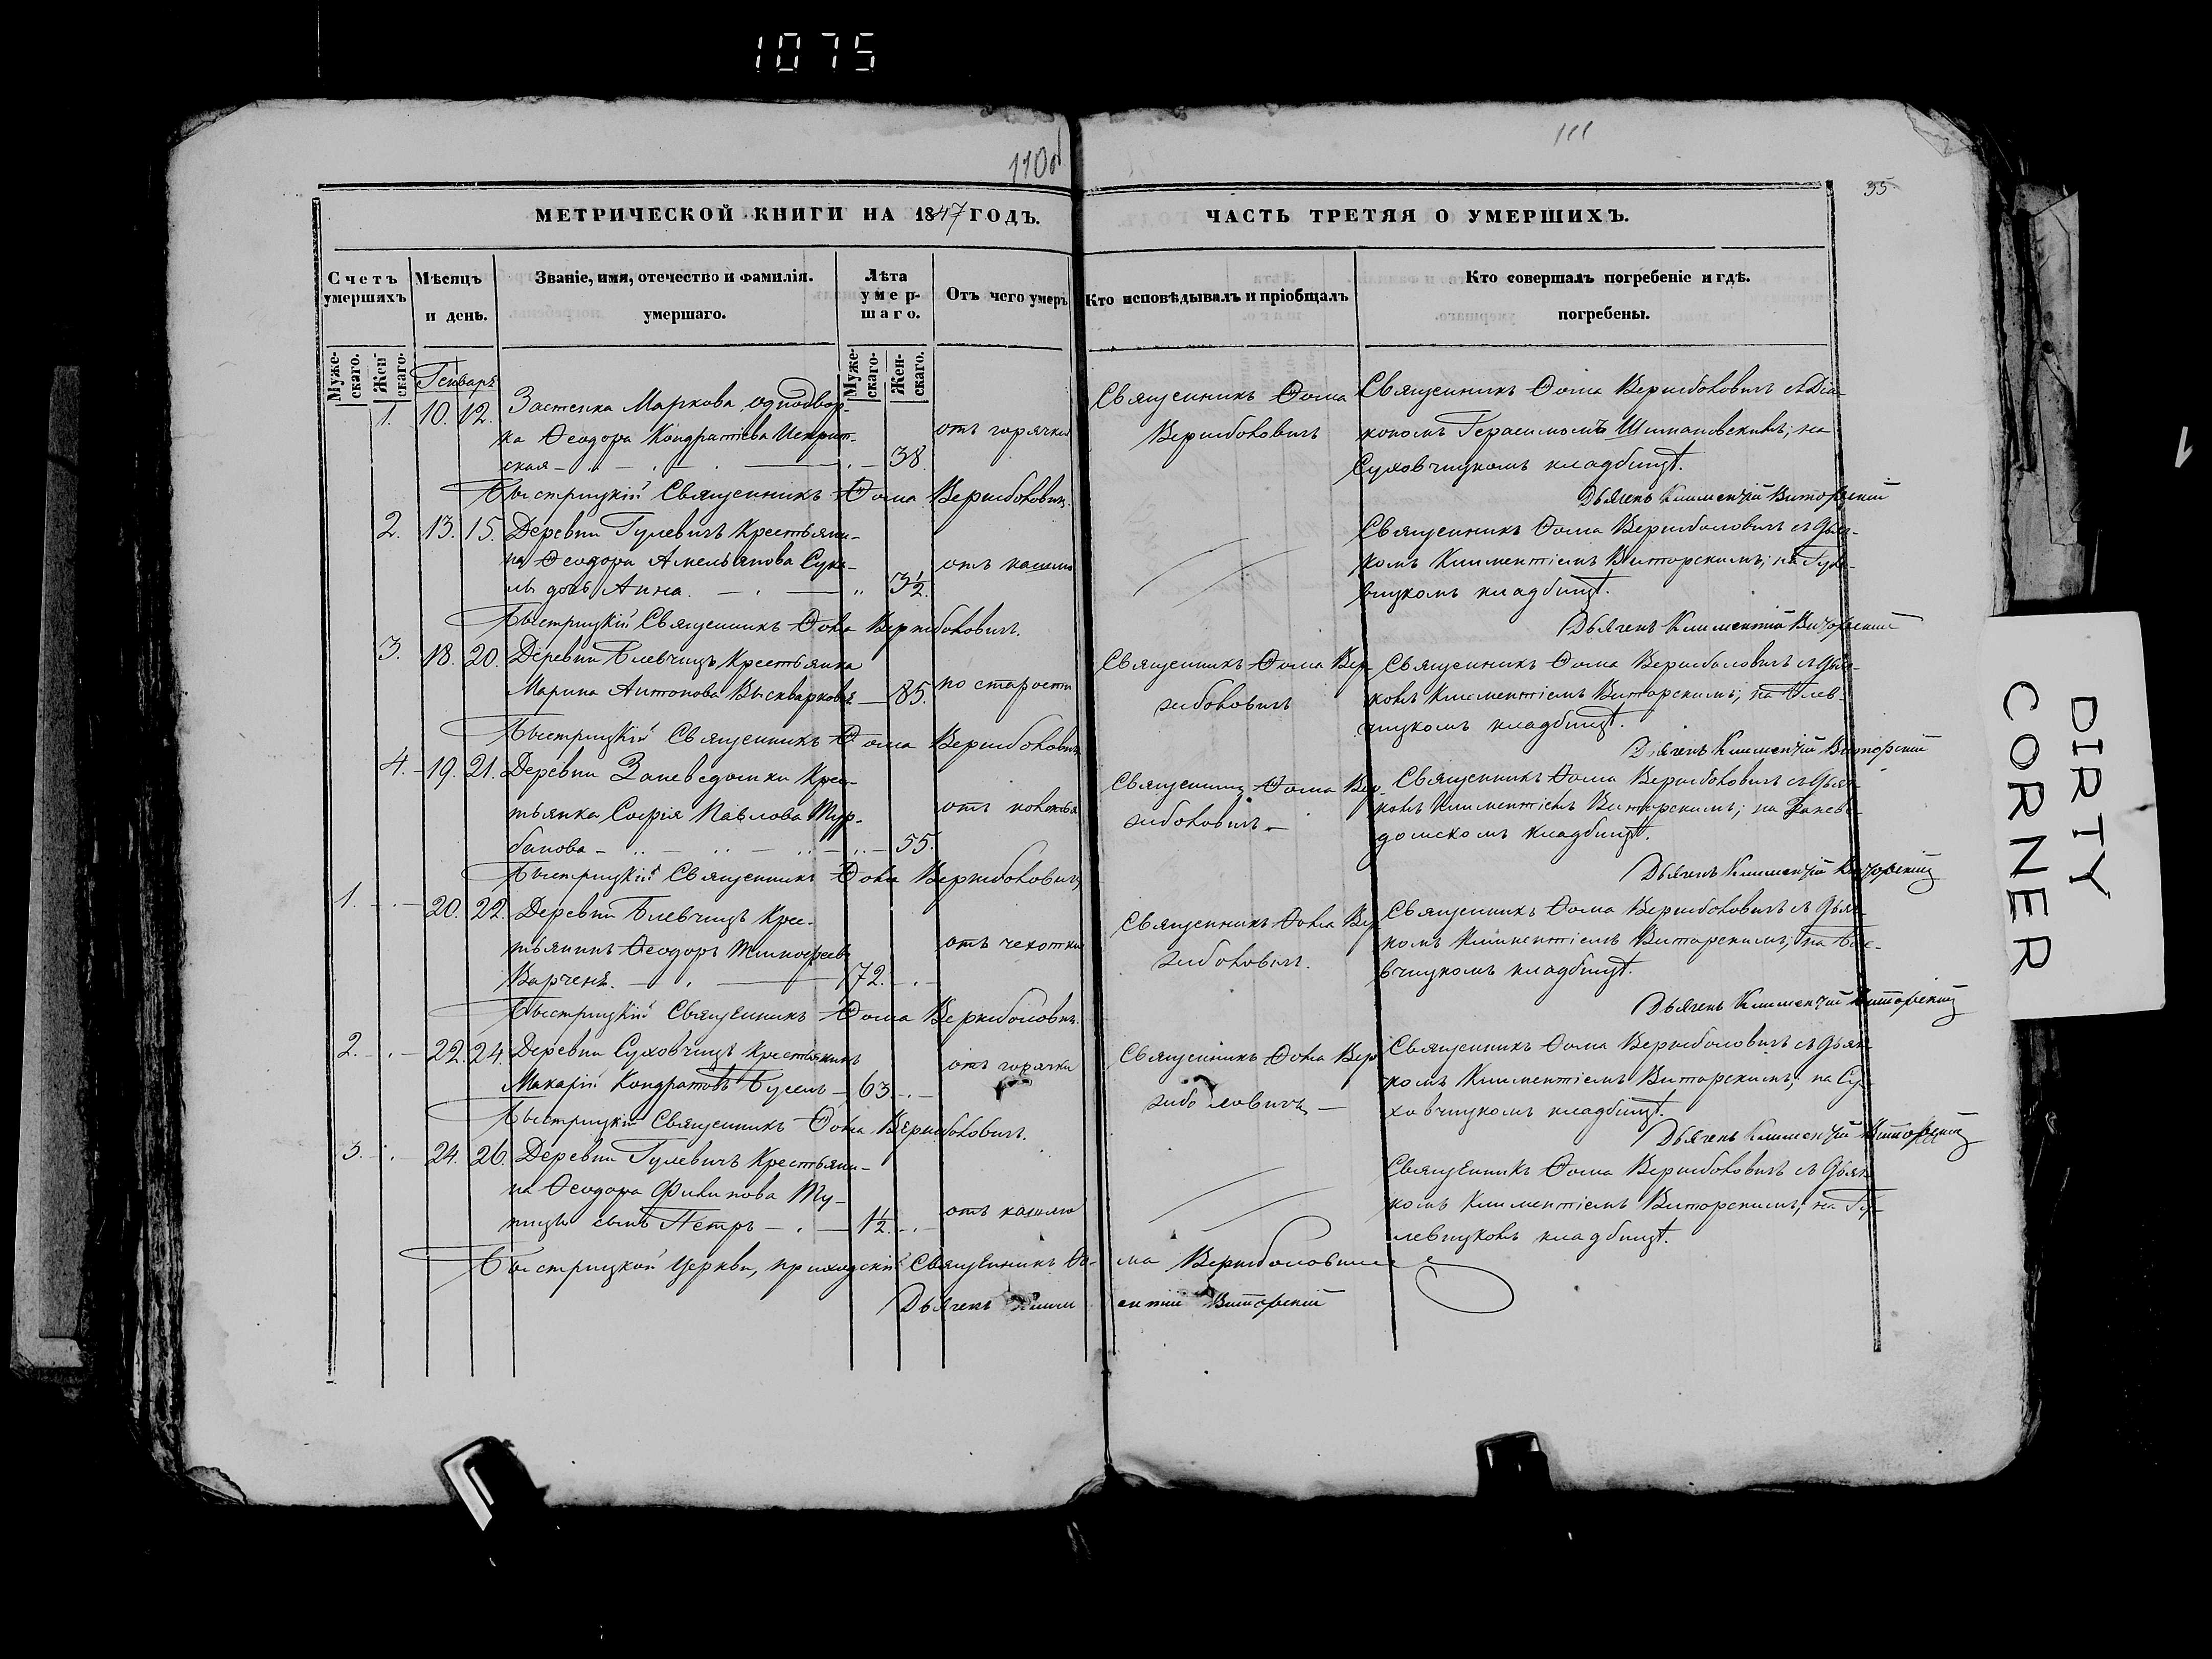 1075
110об
111
35
МЕТРИЧЕСКОЙ КНИГИ НА 1847 ГОДЪ.
ЧАСТЬ ТРЕТЯЯ О УМЕРШИХЪ.
Счетъ умершихъ
Мѣсяцъ и день.
Званіе, имя, отечество и фамилія.
умершаго.
Лѣта умершаго.
Отъ чего умеръ
Кто исповѣдывалъ и пріобщалъ
Кто совершалъ погребеніе и гдѣ.
погребены.
Мужескаго.
Женскаго.
Мужескаго.
Женскаго.
Генварь
1. 10. 12. Застенка Маркова однодвор-
ка Ѳеодора Кондратіева
ская 38.
отъ горячки
Священникъ Ѳома
Вержболовичъ
Священникъ Ѳома Вержболовичъ съ Діа-
кономъ Герасимомъ Шимановскимъ; на
Суховчицкомъ кладбищѣ.
Быстрицкій Священникъ Ѳома Вержболовичъ.
Дьячекъ Климентій Виторскій
2. 13. 15. Деревни Гулевичъ Крестьяни-
на Ѳеодора Амельянова
дочь Анна. 3½.
отъ кашлю
Священникъ Ѳома Вержболовичъ съ Дьяч-
комъ Климентіемъ Виторскимъ; на Гуле-
вицкомъ кладбищѣ.
Быстрицкій Священникъ Ѳома Вержболовичъ.
Дьячекъ Климентій Виторскій
3. 18. 20. Деревни Блевчицъ Крестьянка
Марина Антонова Выскваркова 85.
по старости
Священникъ Ѳома Вер-
жболовичъ
Священникъ Ѳома Вержболовичъ съ Дьяч-
комъ Климентіемъ Виторскимъ; на Блев-
чицкомъ кладбищѣ.
Быстрицкій Священникъ Ѳома Вержболовичъ
Дьячекъ Климентій Виторскій
4. 19. 21. Деревни Заневедомки Крес-
тьянка Софія Павлова Тур-
банова 55.
отъ колотья
Священникъ Ѳома Вер-
жболовичъ
Священникъ Ѳома Вержболовичъ съ Дьяч-
комъ Климентіемъ Виторскимъ; на Заневе-
домскомъ кладбищѣ.
Быстрицкій Священникъ Ѳома Вержболовичъ
Дьячекъ Климентій Виторскій
1. 20. 22. Деревни Блевчицъ Крес-
тьянинъ Ѳеодоръ Тимофеевъ
Варченя. 72.
отъ чехотки
Священникъ Ѳома Вер-
жболовичъ.
Священникъ Ѳома Вержболовичъ съ Дьяч-
комъ Климентіемъ Виторскимъ; на Бле-
вчицкомъ кладбищѣ.
Быстрицкій Священникъ Ѳома Вержболовичъ.
Дьячекъ Климентій Виторскій
2. 22. 24. Деревни Суховчицъ Крестьянинъ
Макарій Кондратовъ Бусель 63.
отъ горячки
Священникъ Ѳома Вер-
жболовичъ
Священникъ Ѳома Вержболовичъ съ Дьяч-
комъ Климентіемъ Виторскимъ; на Су-
ховчицкомъ кладбищѣ.
Быстрицкій Священникъ Ѳома Вержболовичъ.
Дьячекъ Климентій Виторскій
3. 24. 26. Деревни Гулевичъ Крестьяни-
на Ѳеодора Филипова
сынъ Петръ 1½.
отъ кашлю
Священникъ Ѳома Вержболовичъ съ Дьяч-
комъ Климентіемъ Виторскимъ; на Гу-
левицкомъ кладбищѣ.
Быстрицкой Церкви, приходскій Священникъ Ѳо- ма Вержболовичъ
Дьячекъ Климентій Виторскій
DIRTY
CORNER
1